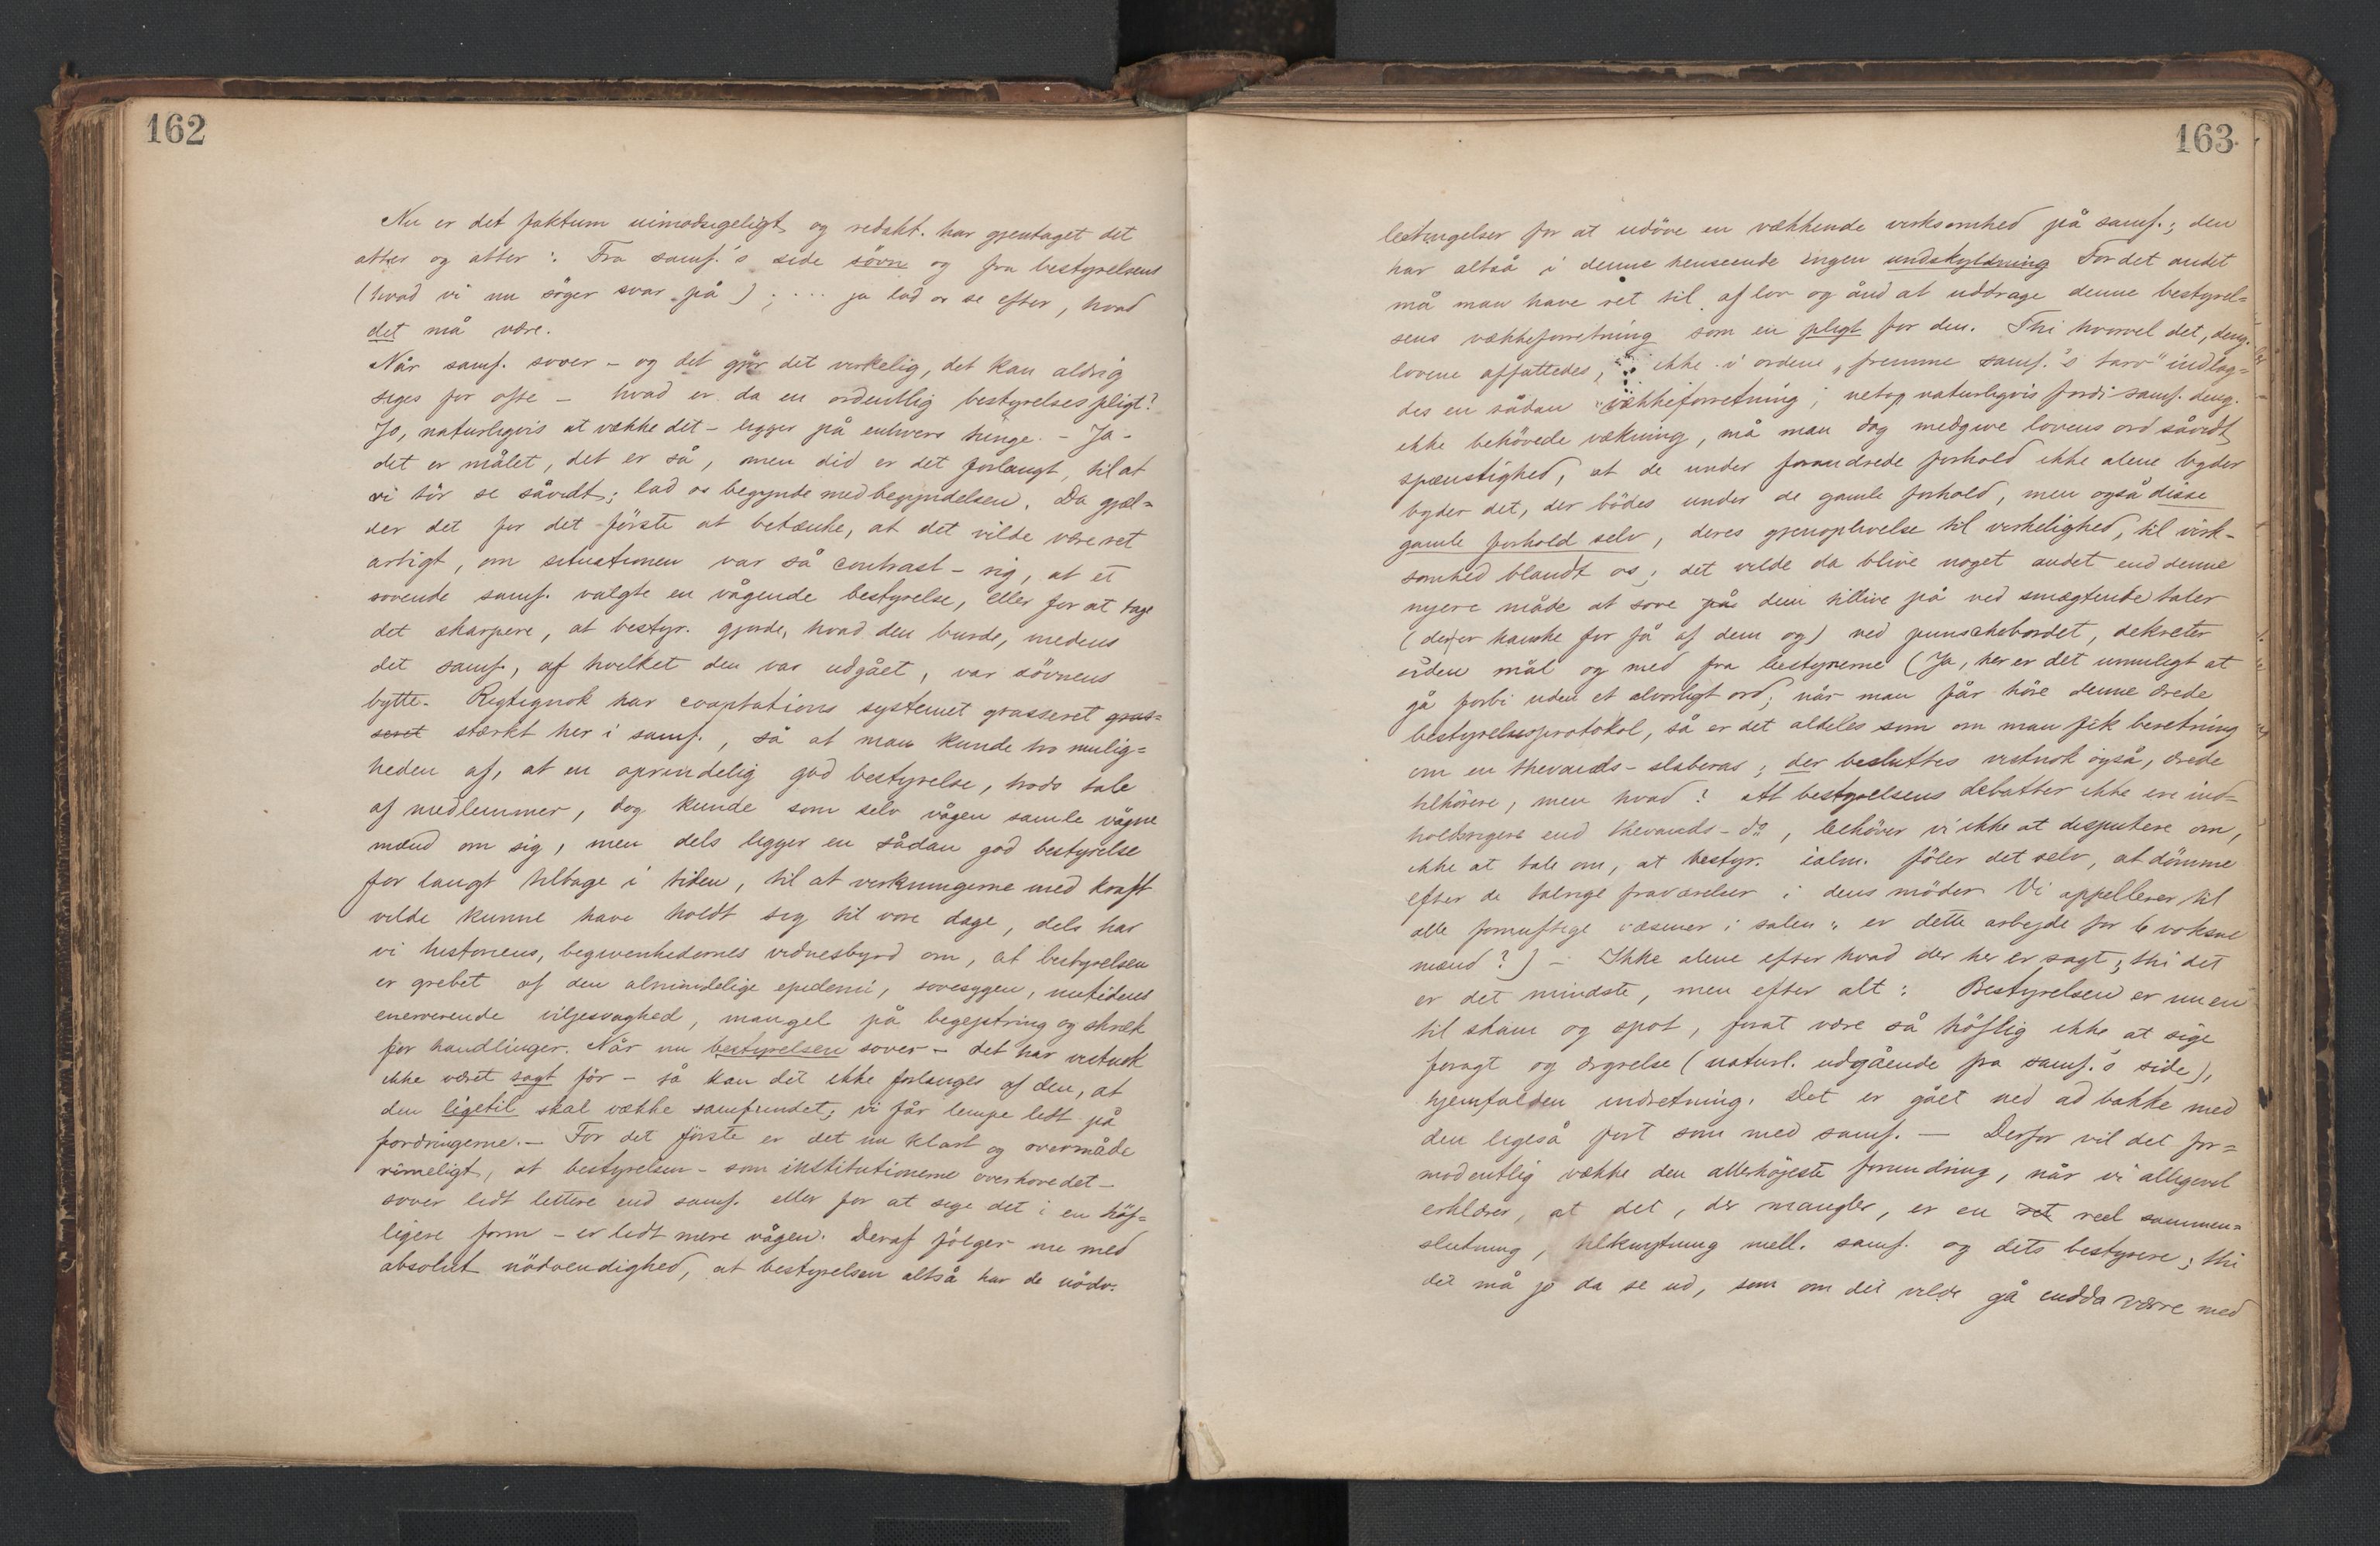 162
Nu er det faktum uimodsigeligt, og redakt. har gjentaget det
atter og atter: Fra samf.'s side søvn og fra bestyrelsens
(hvad vi nu søger svar på); ... ja lad os se efter, hvad
det må være.
Når samf. sover – og det gjør det virkelig, det kan aldrig
siges for ofte – hvad er da en ordentlig bestyrelses pligt?
Jo, naturligvis at vække det – ligger på enhvers tunge. – Ja –
det er målet, det er så, men did er det forlangt, til at
vi tör se såvidt; lad os begynde med begyndelsen. Da gjæl-
der det for det förste at betænke, at det vilde være ret
artigt, om situationen var så contrast-rig, at et
sovende samf. valgte en vågende bestyrelse, eller for at tage
det skarpere, at bestyr. gjorde, hvad den burde, medens
det samf., af hvilket den var udgået, var sövnens
bytte. Rigtignok har cooptations systemet grasseret gras-
seret stærkt her i samf., så at man kunde tro mulig-
heden af, at en oprindelig god bestyrelse, trods tale
af medlemmer, dog kunde som selv vågen samle vågne
mænd om sig, men dels ligger en sådan god bestyrelse
for langt tilbage i tiden, til at virkningerne med kraft
vilde kunne have holdt sig til vore dage, dels har
vi historiens, begivenhedernes vidnesbyrd om, at bestyrelsen
er grebet af den almindelige epidemi, sovesygen, nutidens
enerverende viljesvaghed, mangel på begejstring og skræk
for handlinger. Når nu bestyrelsen sover – det har vistnok
ikke været sagt för – så kan det ikke forlanges af den, at
den ligetil skal vække samfundet; vi får lempe lidt på
fordringerne. – For det förste er det nu klart og overmåde
rimeligt, at bestyrelsen – som institutionerne overhovedet –
sover lidt lettere end samf. eller for at sige det i en höf-
ligere form – er lidt mere vågen. Deraf fölger nu med
absolut nödvendighed, at bestyrelsen altså har de nödv.
163
betingelser for at udöve en vækkende virksomhed på samf.; den
har altså i denne henseende ingen undskyldning For det andet
må man have ret til af lov og ånd at uddrage denne bestyrel-
sens vækkeforretning som en pligt for den. Thi hvorvel det, deng.
lovene affattedes, ikke i ordene „fremme samf.'s tarv" indlag-
des en sådan vækkeforretning; netop naturligvis fordi samf. deng.
ikke behövede vækning, må man dog medgive lovens ord såvidt
spænstighed, at de under forandrede forhold ikke alene byder
byder det, der bödes under de gamle forhold, men også disse
gamle forhold selv, deres gjenoplivelse til virkelighed, til virk-
somhed blandt os; det vilde da blive noget andet end denne
nyere måde at sove på dem tillive på ved smægtende taler
(der er kanske for få af dem og) ved punschebordet, dekreter
uden mål og med fra bestyrerne (Ja, her er det umuligt at
gå forbi uden et alvorligt ord; når man får höre denne ærede
bestyrelsesprotokol, så er det aldeles som om man fik beretning
om en thevands-slaberas; der besluttes vistnok også, ærede
tilhörere, men hvad? At bestyrelsens debatter ikke ere ind-
holdsrigere end thevands-do, behöver vi ikke at disputere om,
ikke at tale om, at bestyr. ialm. föler det selv, at dömme
efter de talrige fraværelser i dens möder Vi appellerer til
alle fornuftige væsener i salen „er dette arbejde for 6 voksne
mænd?) – Ikke alene efter hvad der her er sagt; thi det
er det mindste, men efter alt: Bestyrelsen er nu en
til skam og spot, forat være så höflig ikke at sige
foragt og ærgrelse (naturl. udgående fra samf.'s side),
hjemfalden indretning. Det er gået ned ad bakke med
den ligeså fort som med samf. – Derfor vil det for-
modentlig vække den allerhöjeste forundring, når vi alligevel
erklærer, at det, der mangler, er en ret reel sammen-
slutning, tilknytning mell. samf. og dets bestyrere; thi
det må jo da se ud, som om det vilde gå endda værre med